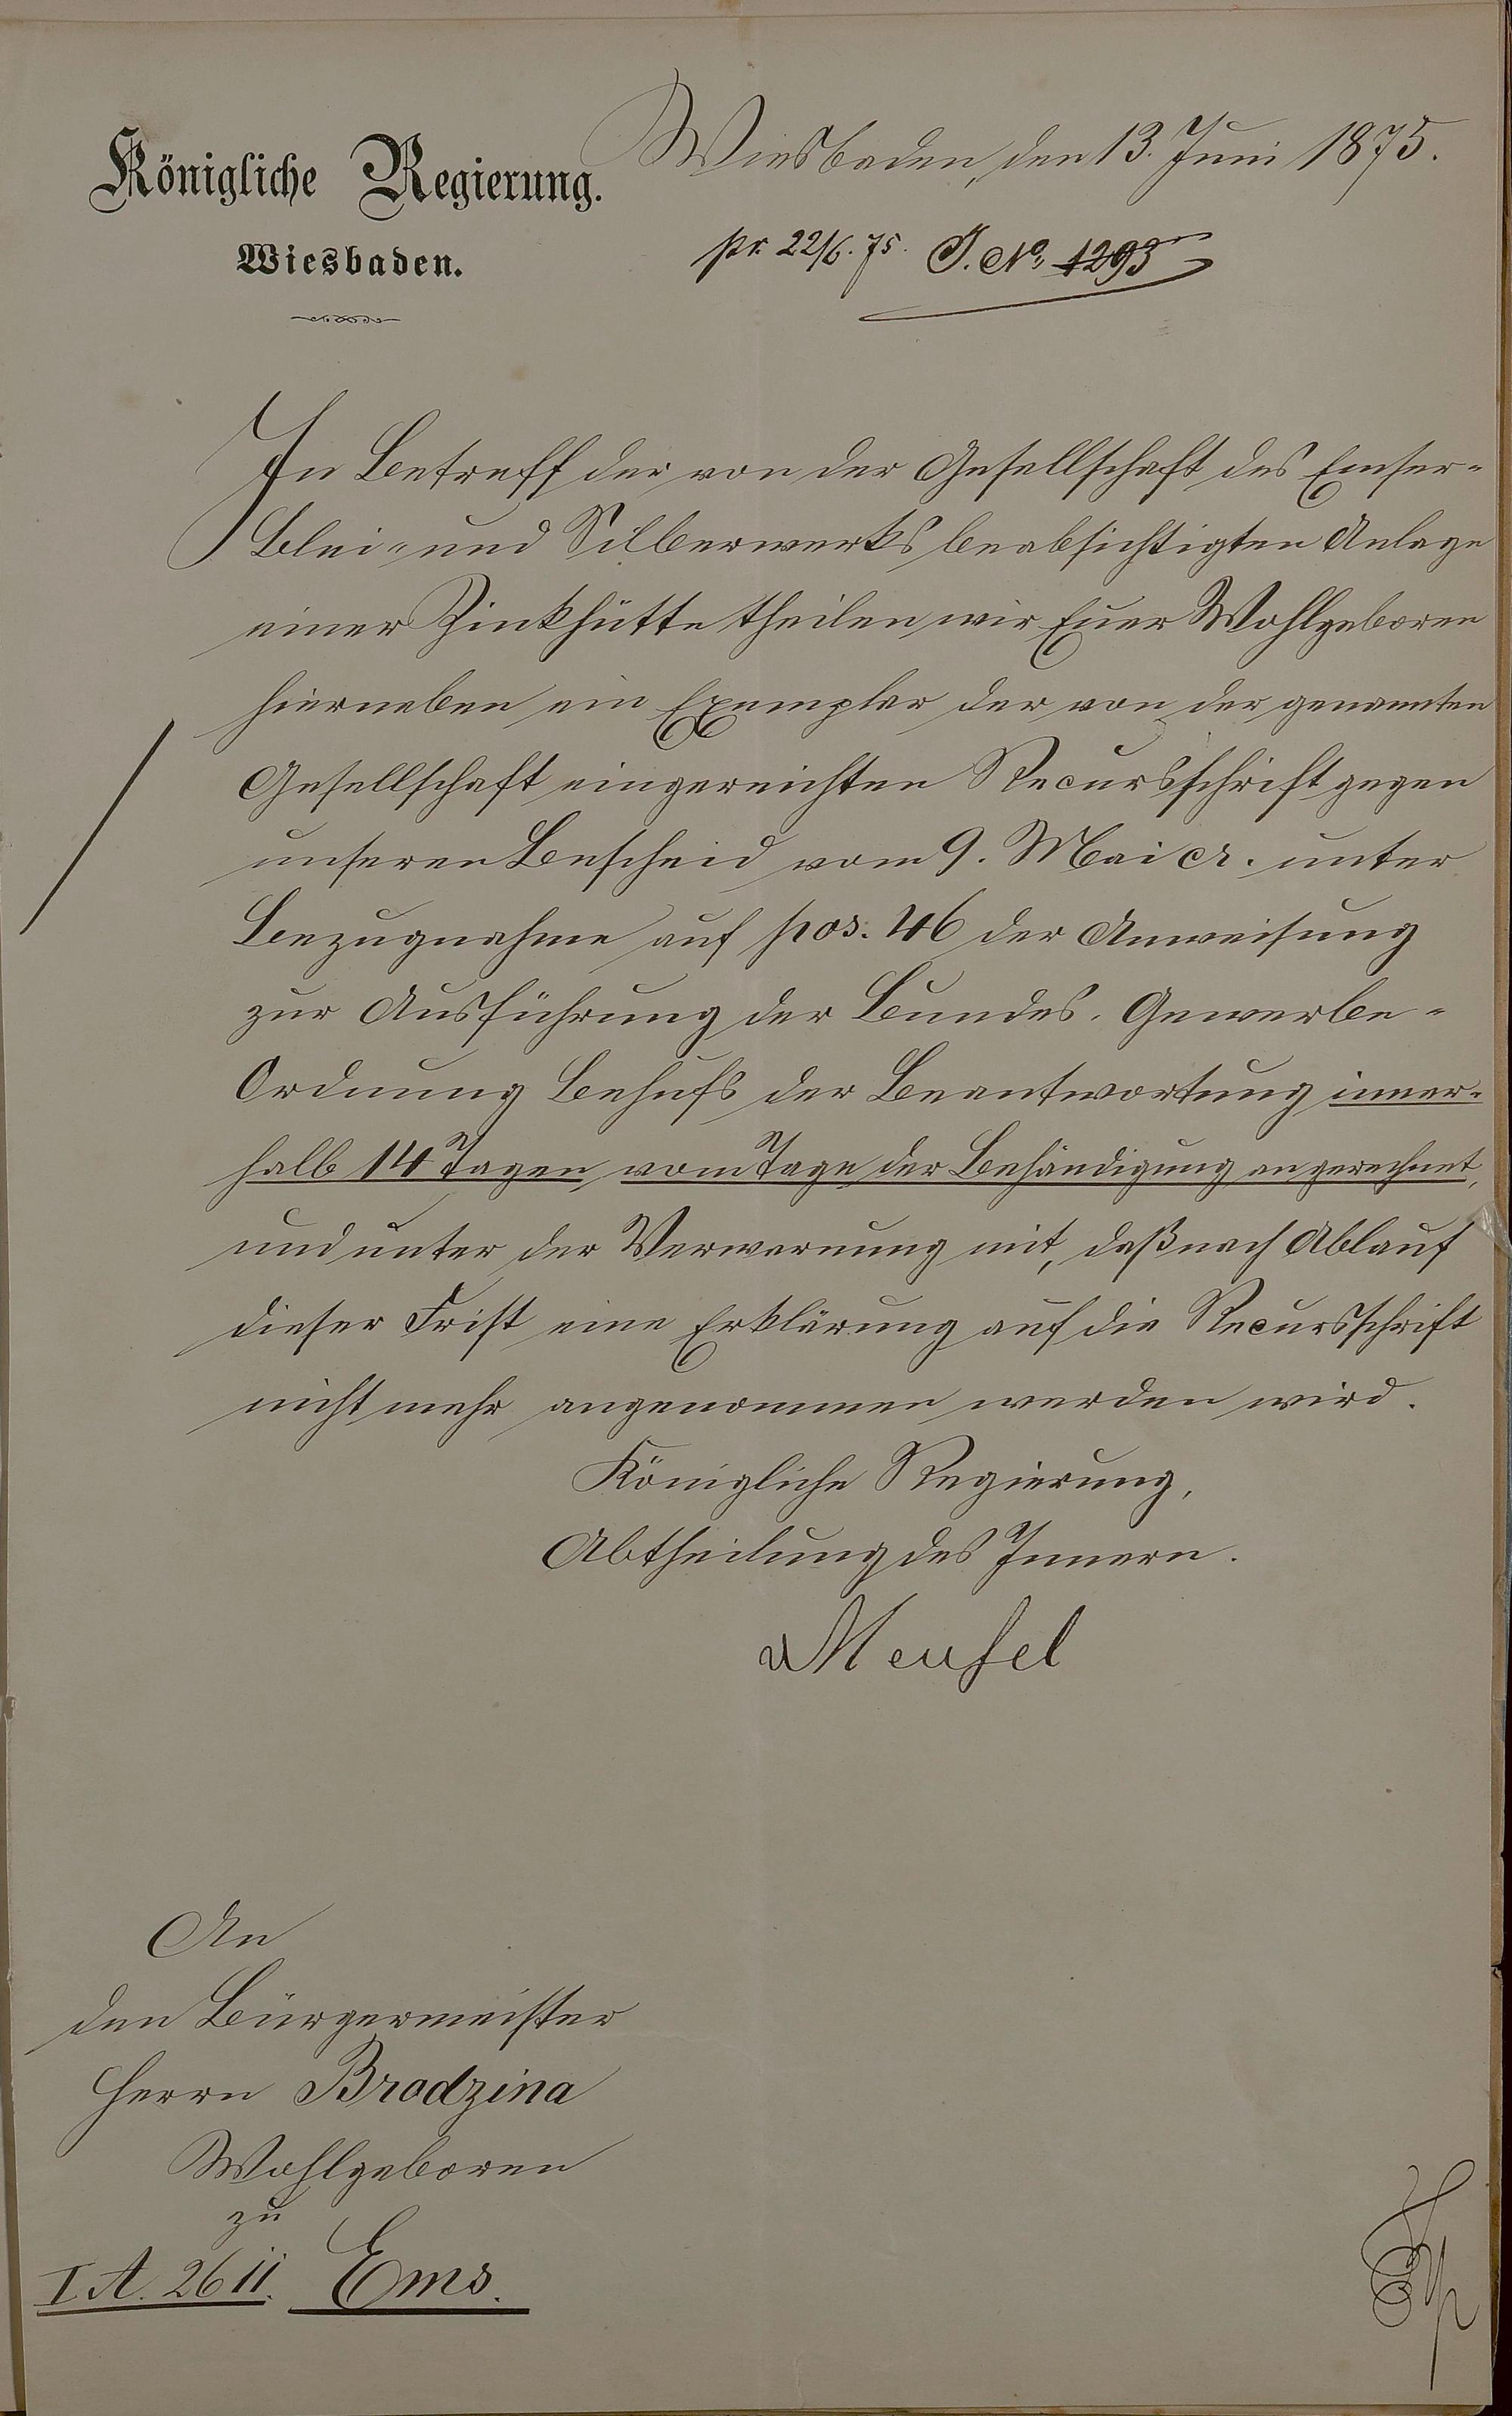 Königliche Regierung.
Wiesbaden.
Wiesbaden, den 13. Juni 1875.
pr. 22/6. 75. J. No. 1293
In Betreff der von der Gesellschaft des Emser-
Blei- und Silberwerks beabsichtigten Anlage
einer Zinkhütte theilen wir Euer Wohlgeboren
hierneben ein Exemplar der von der genannten
Gesellschaft eingereichten Recursschrift gegen
unseren Bescheid vom 9. Mai cr. unter
Bezugnahme auf pos. 46 der Anweisung
zur Ausführung der Bundes-Gewerbe-
Ordnung Behufs der Beantwortung inner-
halb 14 Tagen, vom Tage der Behändigung an gerechnet,
und unter der Verwarnung mit, daß nach Ablauf
dieser Frist eine Erklärung auf die Recursschrift
nicht mehr angenommen werden wird.
Königliche Regierung,
Abtheilung des Innern.
An
den Bürgermeister
Herrn Brodzina
Wohlgeboren
zu
I A. 2611. Ems.